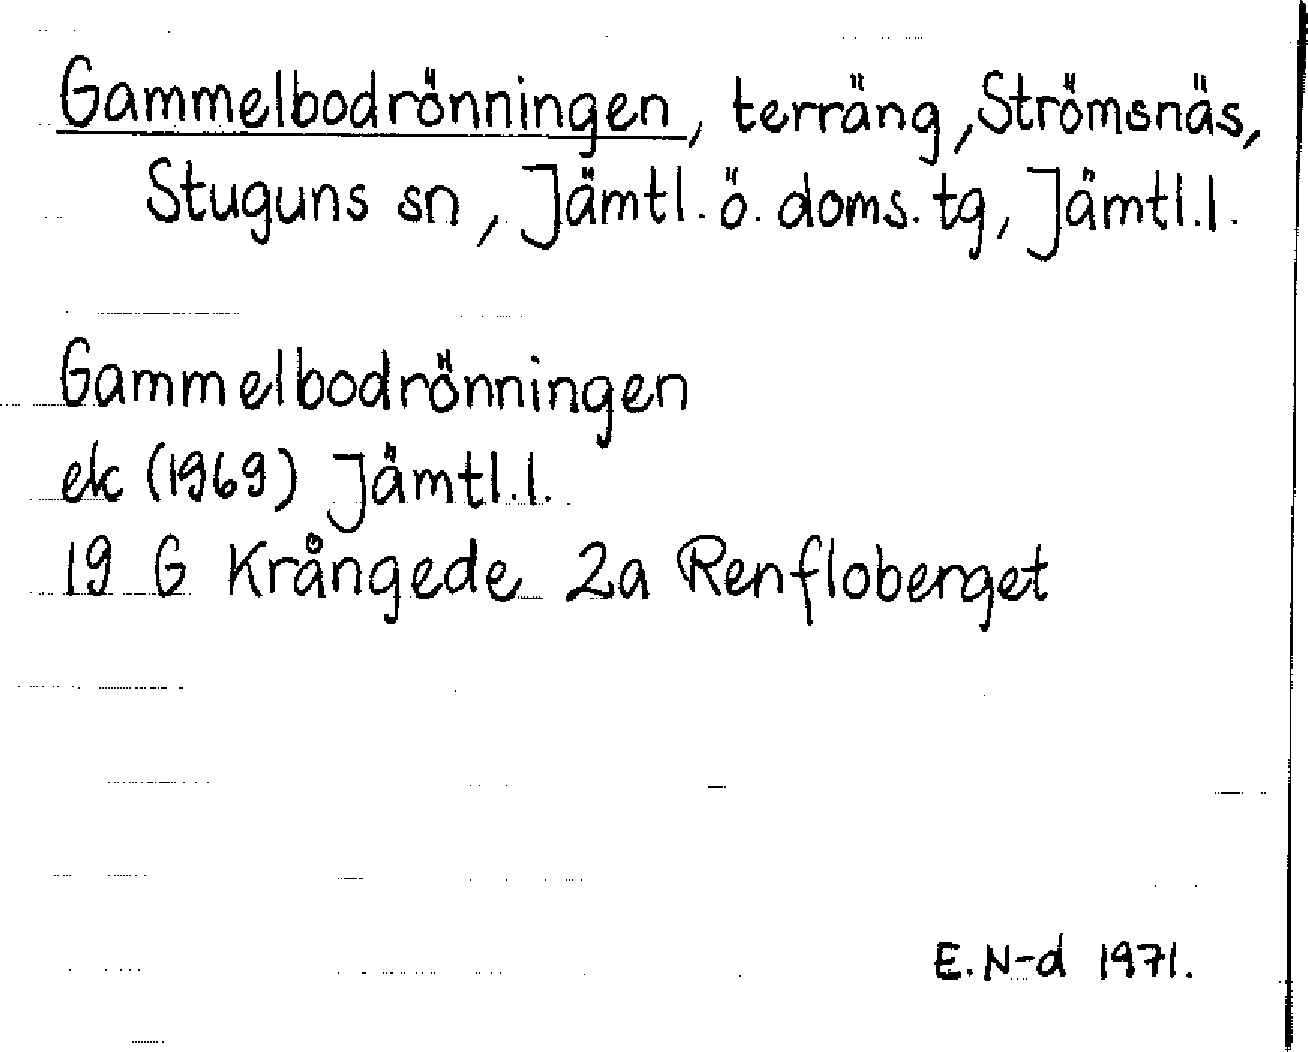 Gammelbodrönningen, terräng, Strömsnäs,
Stuguns sn, Jämtl. ö. doms. tg, Jämtl.l.
Gammelbodrönningen
ek (1969) Jämtl.l.
19 G Krångede 2a Renfloberget
E. N-d 1971.